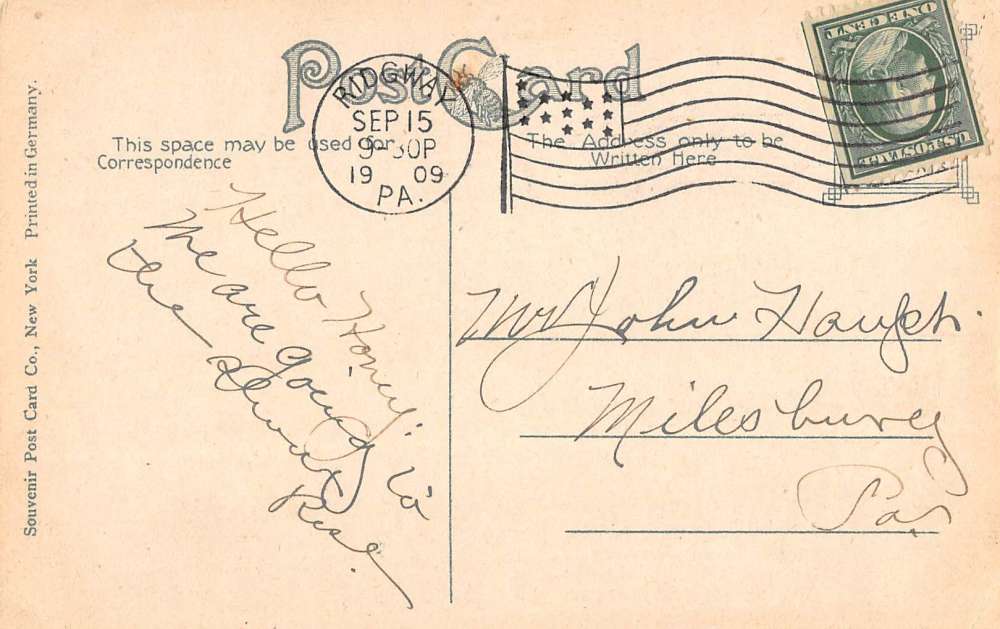 Post Card
RIDGWAY
SEP 15
9-30P
19 09
PA.
This space may be used for
Correspondence
The Address only to be
Written Here
ONE CENT
U.S. POSTAGE
Souvenir Post Card Co., New York Printed in Germany.
Hello Honey.
We are going to
the
Rose.
Mr John
Milesburg
Pa.